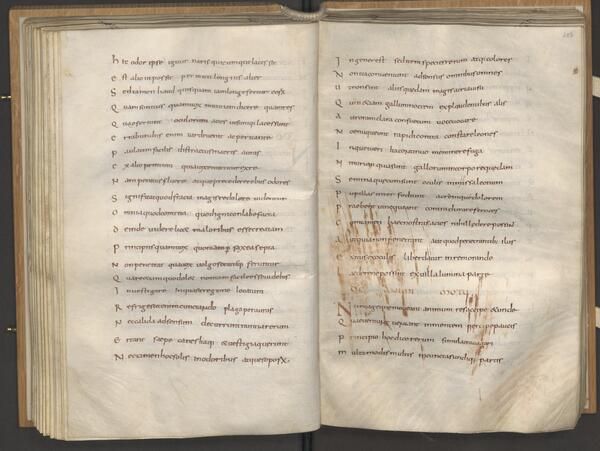 hic odor ipse igitur naris quicumque lacessit
est alio ut possit permitti longius alter
sed tamen haud quisquam tam longe fertur eorx
quam sonitus quam vox mitto iam dicere quam res
quae feriunt oculorum acies visumque lacessunt
errabundus enim tarde venit ac perit ante
paulatim facilis distractus in aeris auras
ex alto primum quia vix emittitur ex re
nam penitus fluere atque recedere rebus odores
significat quod fracta magis redolere videntur
omnia quod contrita quod igni conlabefacta
deinde videre licet maioribus esse creatam
principiis quam vox quoniam per saxea septa
non penetrat qua vox vulgo sonitusque feruntur
quare etiam quod olet non tam facile esse videbis
investigare in qua sit regione locatum
refrigescit enim cunctando plaga per auras
nec calida ad sensum decurrunt nuntia rerum
errant saepe canes itaque et vestigia querunt
nec tamen hoc solis in odoribus atque saporx
in genere est sed item species rerum atq colores
non ita conveniunt ad sensus omnibus omnes
ut non sint aliis quaedam magis acria visu
quin etiam gallum noctem explaudentibus alis
auroram clara consuetum voce vocare
noenu queunt rapidi contra constare leones
inque tueri ita continuo meminere fuga
nimirum quia sunt gallorum in corpore quaedam
semina quae cum sunt oculis inmissa leonum
pupillas interfodiunt acremque dolorem
praebent ut nequeant contra durare feroces
cum tamen haec nostras acies nihil laedere possint
aut quia non penetrant aut quod penetrantibus illis
exitus ex oculis liber datur in remorando
laedere ne possint ex ulla lumina parte
De animi motu
Nunc age quae moveant animum res accipe et unde
quae veniunt veniant in mentem percipe paucis
principio hoc dico rerum simulacra vagari
multa modis multis in cunctas undiq partis